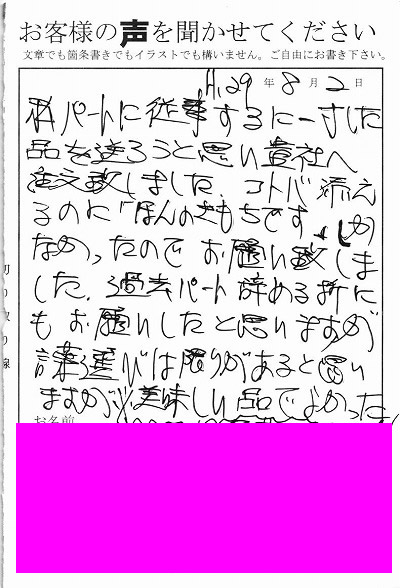 お客様の声を聞かせてください
文章でも箇条書きでもイラストでも構いません。ご自由にお書き下さい。
H.29 年 8 月 2 日
私パートに従事するに一寸した
品を送ろうと思い貴社へ
注文致しました、コトバ添え
るのに「ほんの気もちです」しか
なかったのでお願い致しま
した、過去パート辞める折に
もお願いしたと思いますが
言葉選びは限りがあると思い
ますが 美味しい品でよかった
お名前
切り取り線